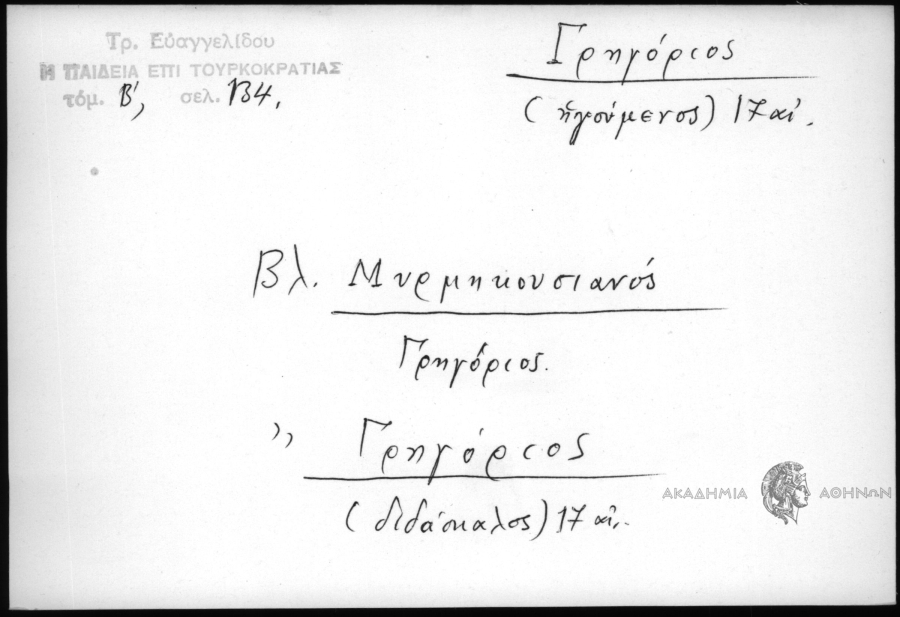 Τρ. Εὐαγγελίδου
Η ΠΑΙΔΕΙΑ ΕΠΙ ΤΟΥΡΚΟΚΡΑΤΙΑΣ
τόμ. Β', σελ. 134.
Γρηγόριος
(ἡγούμενος) 17 αἰ.
Βλ. Μυρμηκουσιανός
Γρηγόριος.
〃 Γρηγόριος
(διδάσκαλος) 17 αἰ.
ΑΚΑΔΗΜΙΑ ΑΘΗΝΩΝ